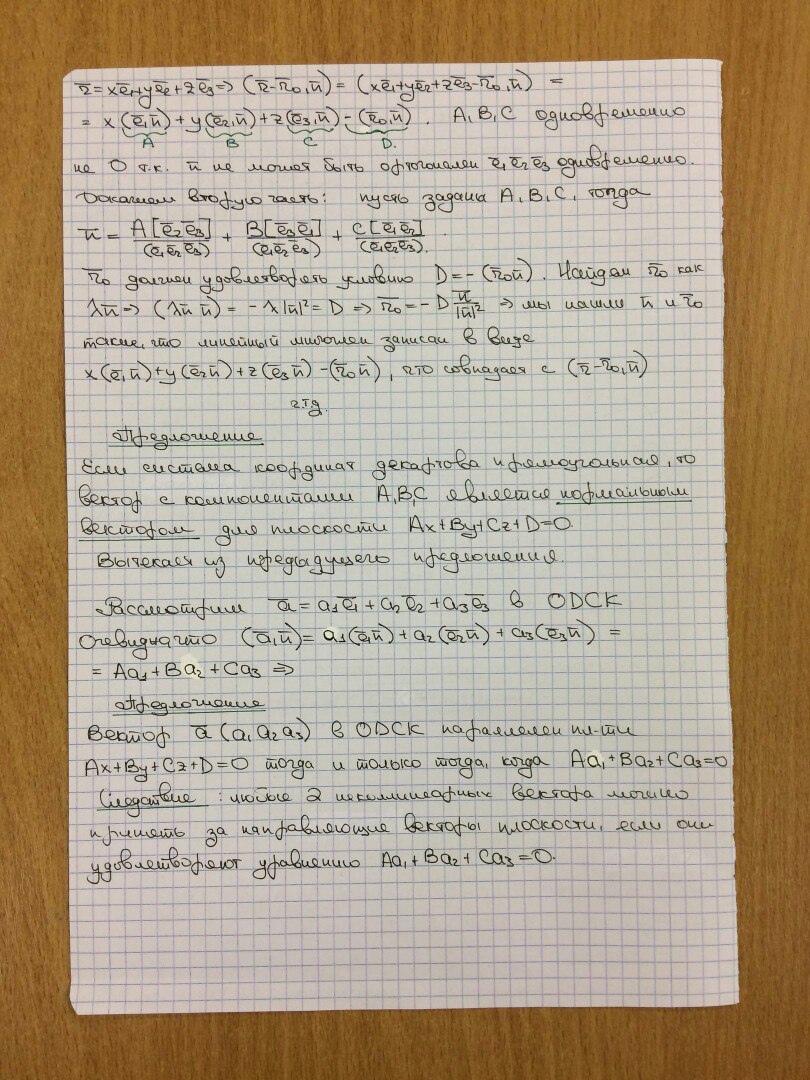 r̄=xē₁+yē₂+zē₃⇒(r̄-r̄₀,n̄)=(xē₁+yē₂+zē₃-r̄₀,n̄) =
= x(ē₁n̄)+y(ē₂,n̄)+z(ē₃,n̄)-(r̄₀,n̄). A,B,C одновременно
A B C D.
не 0 т.к. n̄ не может быть ортогонален ē₁ ē₂ ē₃ одновременно.
Докажем вторую часть: пусть заданы A,B,C, тогда
n̄ = A[ē₂ē₃]/(ē₁ē₂ē₃) + B[ē₃ē₁]/(ē₁ē₂ē₃) + C[ē₁ē₂]/(ē₁ē₂ē₃).
r̄₀ должен удовлетворять условию D=-(r̄₀n̄). Найдем r̄₀ как
λn̄⇒(λn̄ n̄) = -λ|n̄|²=D⇒r̄₀=-D n̄/|n̄|² ⇒ мы нашли n̄ и r̄₀
такие, что линейный многочлен записан в виде
x(ē₁n̄)+y(ē₂n̄)+z(ē₃n̄)-(r̄₀n̄), что совпадает с (r̄-r̄₀,n̄)
ч.т.д.
Предложение
Если система координат декартова прямоугольная, то
вектор с компонентами A,B,C является нормальным
вектором для плоскости Ax+By+Cz+D=0.
Вытекает из предыдущего предложения.
Рассмотрим ā=a₁ē₁+a₂ē₂+a₃ē₃ в ОДСК
Очевидно что (ā,n̄)=a₁(ē₁n̄)+a₂(ē₂n̄)+a₃(ē₃n̄) =
= Aa₁+Ba₂+Ca₃ ⇒
Предложение
Вектор ā(a₁a₂a₃) в ОДСК параллелен пл-ти
Ax+By+Cz+D=0 тогда и только тогда, когда Aa₁+Ba₂+Ca₃=0
Следствие: любые 2 неколлинеарных вектора можно
принять за направляющие векторы плоскости, если они
удовлетворяют уравнению Aa₁+Ba₂+Ca₃=0.